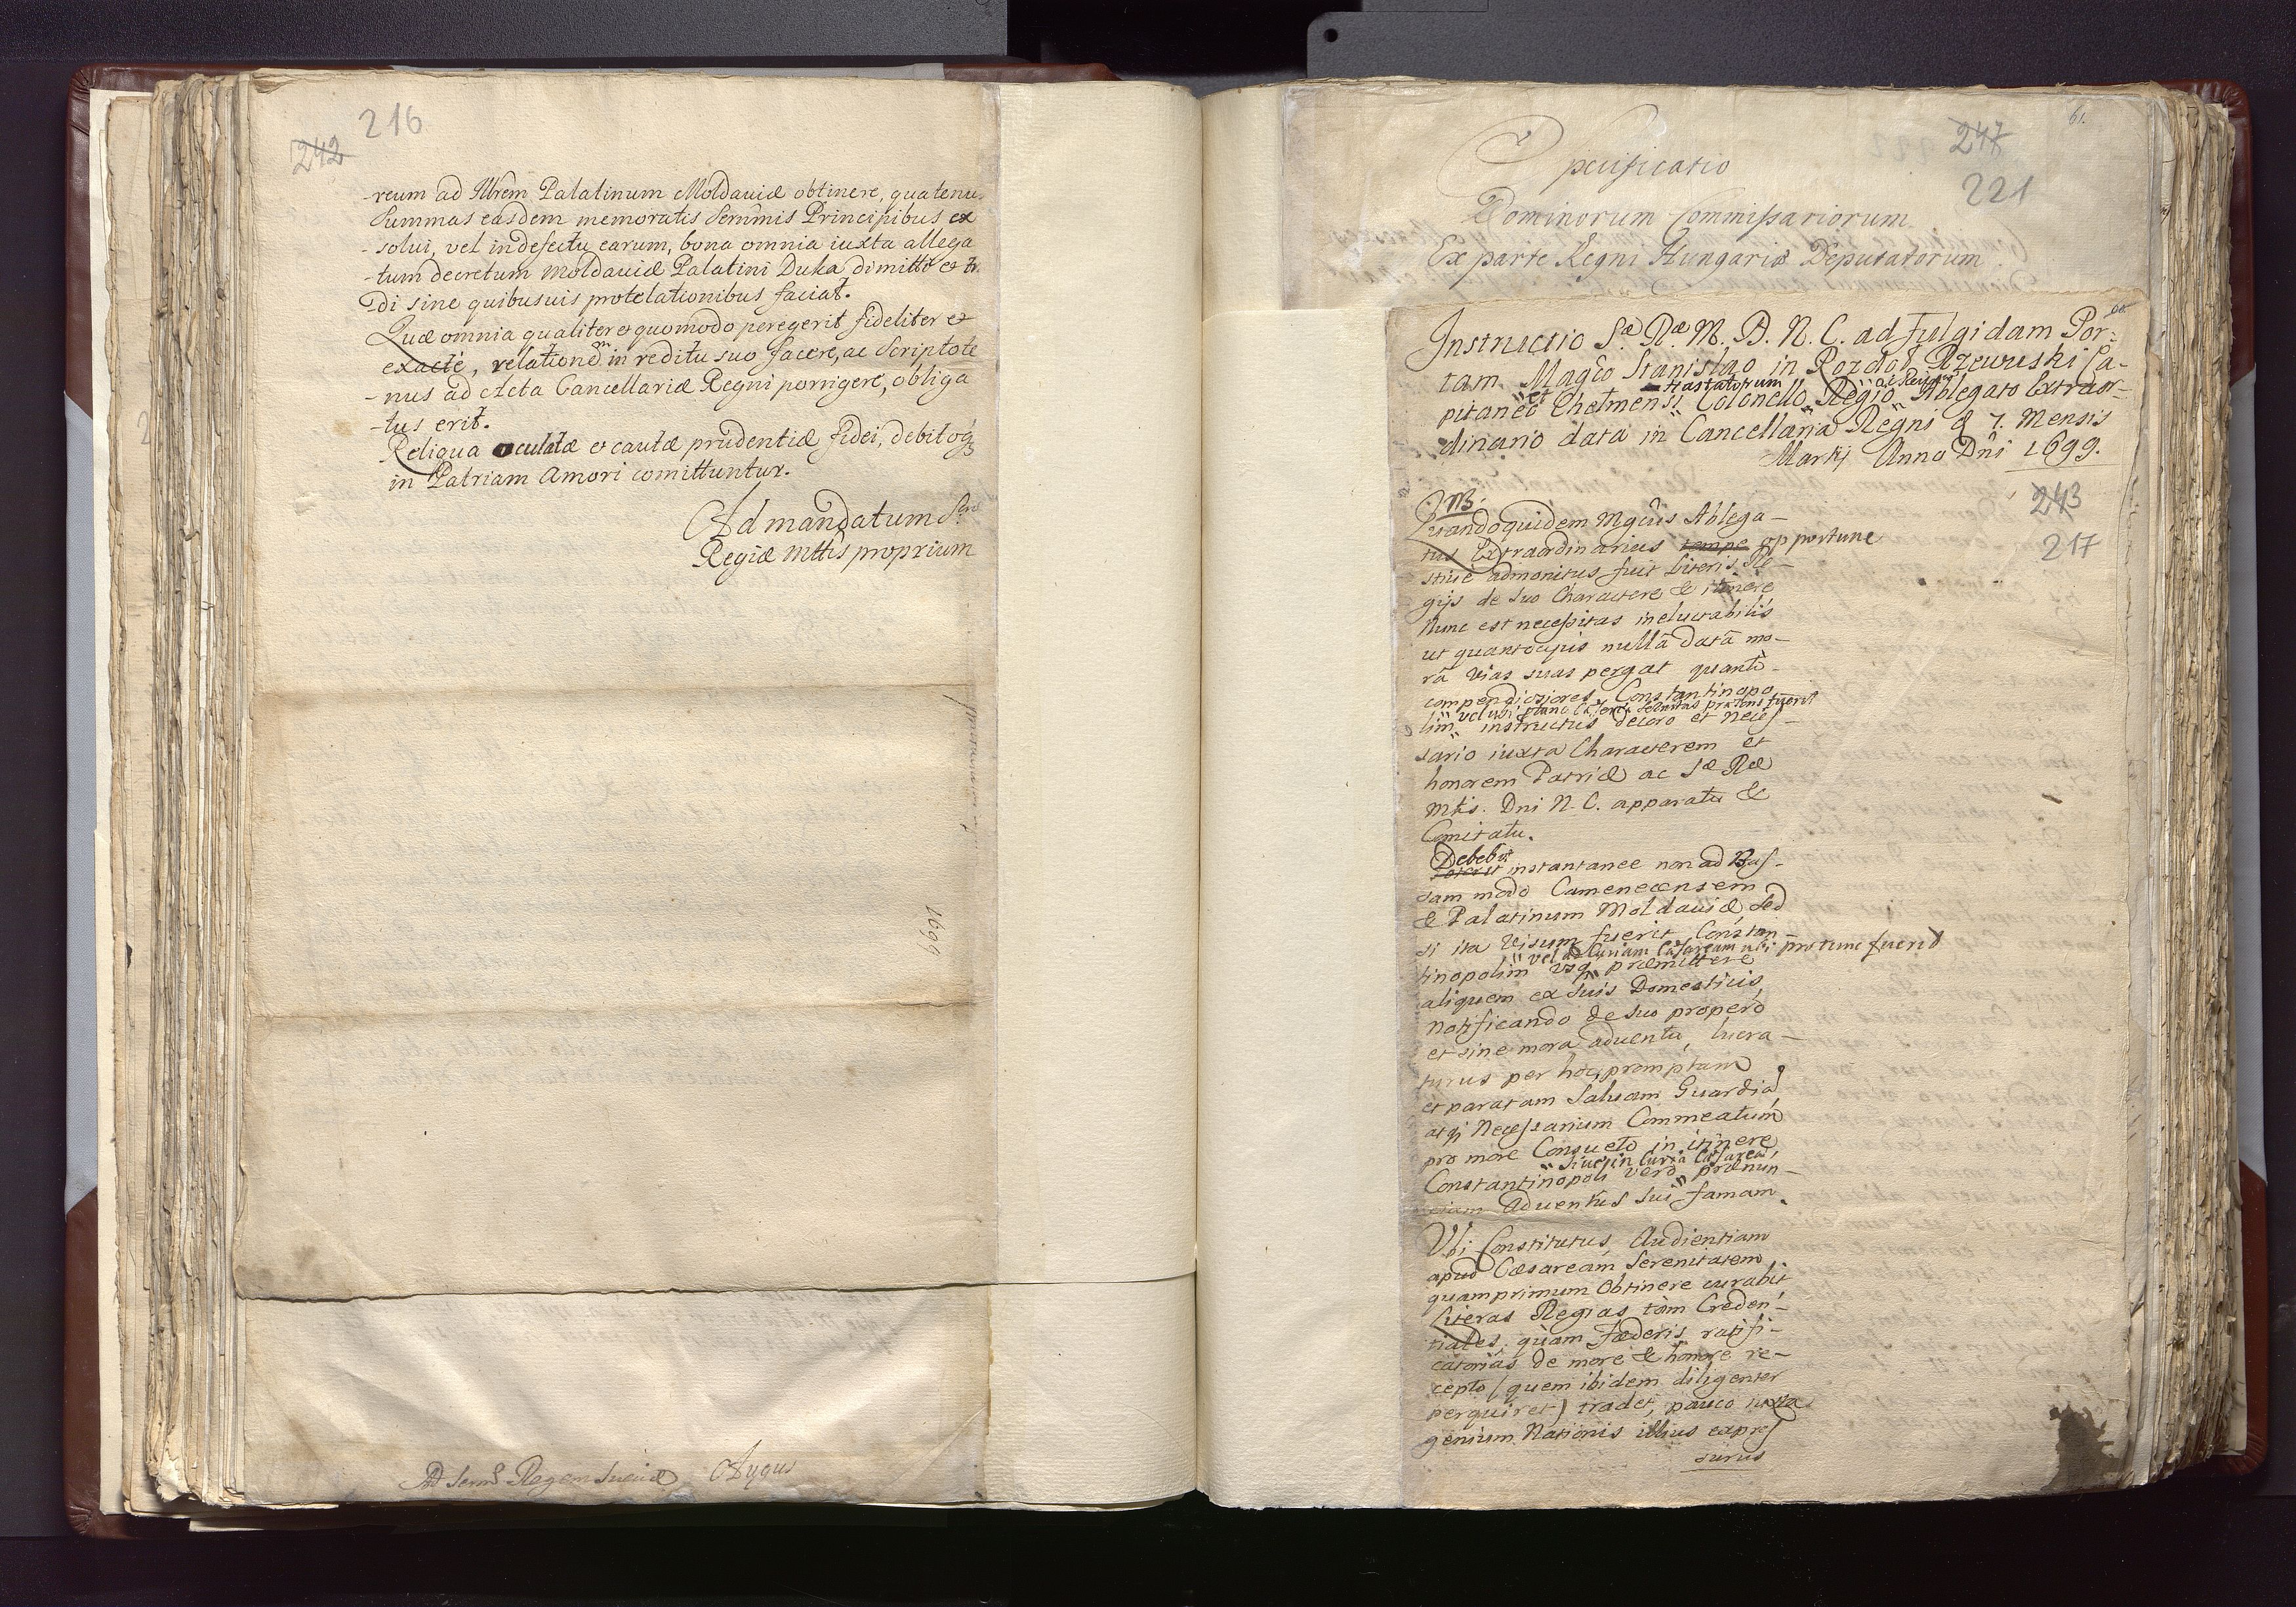 216
242
-reum ad Illrem Palatinum Moldaviæ obtinere, quatenus
summas easdem memoratis Sernmis Principibus ex
-solui, vel in defectu earum, bona omnia iuxta allega
-tum decretum Moldaviæ Palatini Duka dimitti et tr.
-di sine quibusuis protelationibus faciat.
Quæ omnia qualiter et quomodo peregerit fideliter et
exactè, relationem in reditu suo facere, ac Scripto te
-nus ad Acta Cancellariæ Regni porrigere, obliga
-tus erit.
Reliqua oculatæ et cautæ prudentiæ fidei, debitoq;
in Patriam Amori comittuntur.
Ad mandatum Sæ
Regiæ Mttis proprium
1699
Ad Sermũ Regem Sueciæ
61.
247
221
Specificatio
Dominorum Commissariorum
Ex parte Regni Hungariæ Deputatorum
60.
Instructio Sæ Ræ M. D. N. C. ad fulgidam Por-
tam Magco Stanislao in Rozdol Rzewuski Ca-
pitaneo Chelmensi Colonello Regio Ablegato Extraor-
dinario data in Cancellaria Regni d 7. Mensis
Martij Anno Dni 1699.
243
217
NB.
Quandoquidem Mgcus Ablega-
tus Extraordinarius tempe opportune
stiuè admonitus fuit literis Re-
gijs de suo Charactere & itinere
Nunc est necessitas ineluctabilis
ut quantocijus nullâ datâ mo-
râ vias suas pergat quantò
compendiosiores Constantinopo
lim instructus decoro et neces-
sario iuxta Characterem et
honorem Patriæ ac Sæ Ræ
Mtis. Dni N. C. apparatu &
Comitatu.
Debebit
instantanee non ad Bas-
sam modo Camenecensem
& Palatinum Moldauiæ, sed
si ita visum fuerit Constan-
vel ad Curiam Cæsaream ubi protunc fuerit
tinopolim usq præmittere
aliquem ex suis Domesticis,
notificando de suo propero
et sine mora aduentu, lucra-
turus per hoc, promptam
et paratam Saluam Guardiã
atq; Necessarium Commeatum
pro more Consueto in itinere
siue in Curia Cæsarea,
Constantinopoli vero prænun-
ciam Aduentus sui famam.
Vbi Constitutus Audientiam
apud Cæsaream Serenitatem
quamprimum Obtinere curabit
Literas Regias tàm Creden-
tiales, quàm Fœderis ratifi-
catorias de more & honore re-
cepto (quem ibidem diligenter
perquiret) tradet, pauco iuxta
genium Nationis illius expres
surus